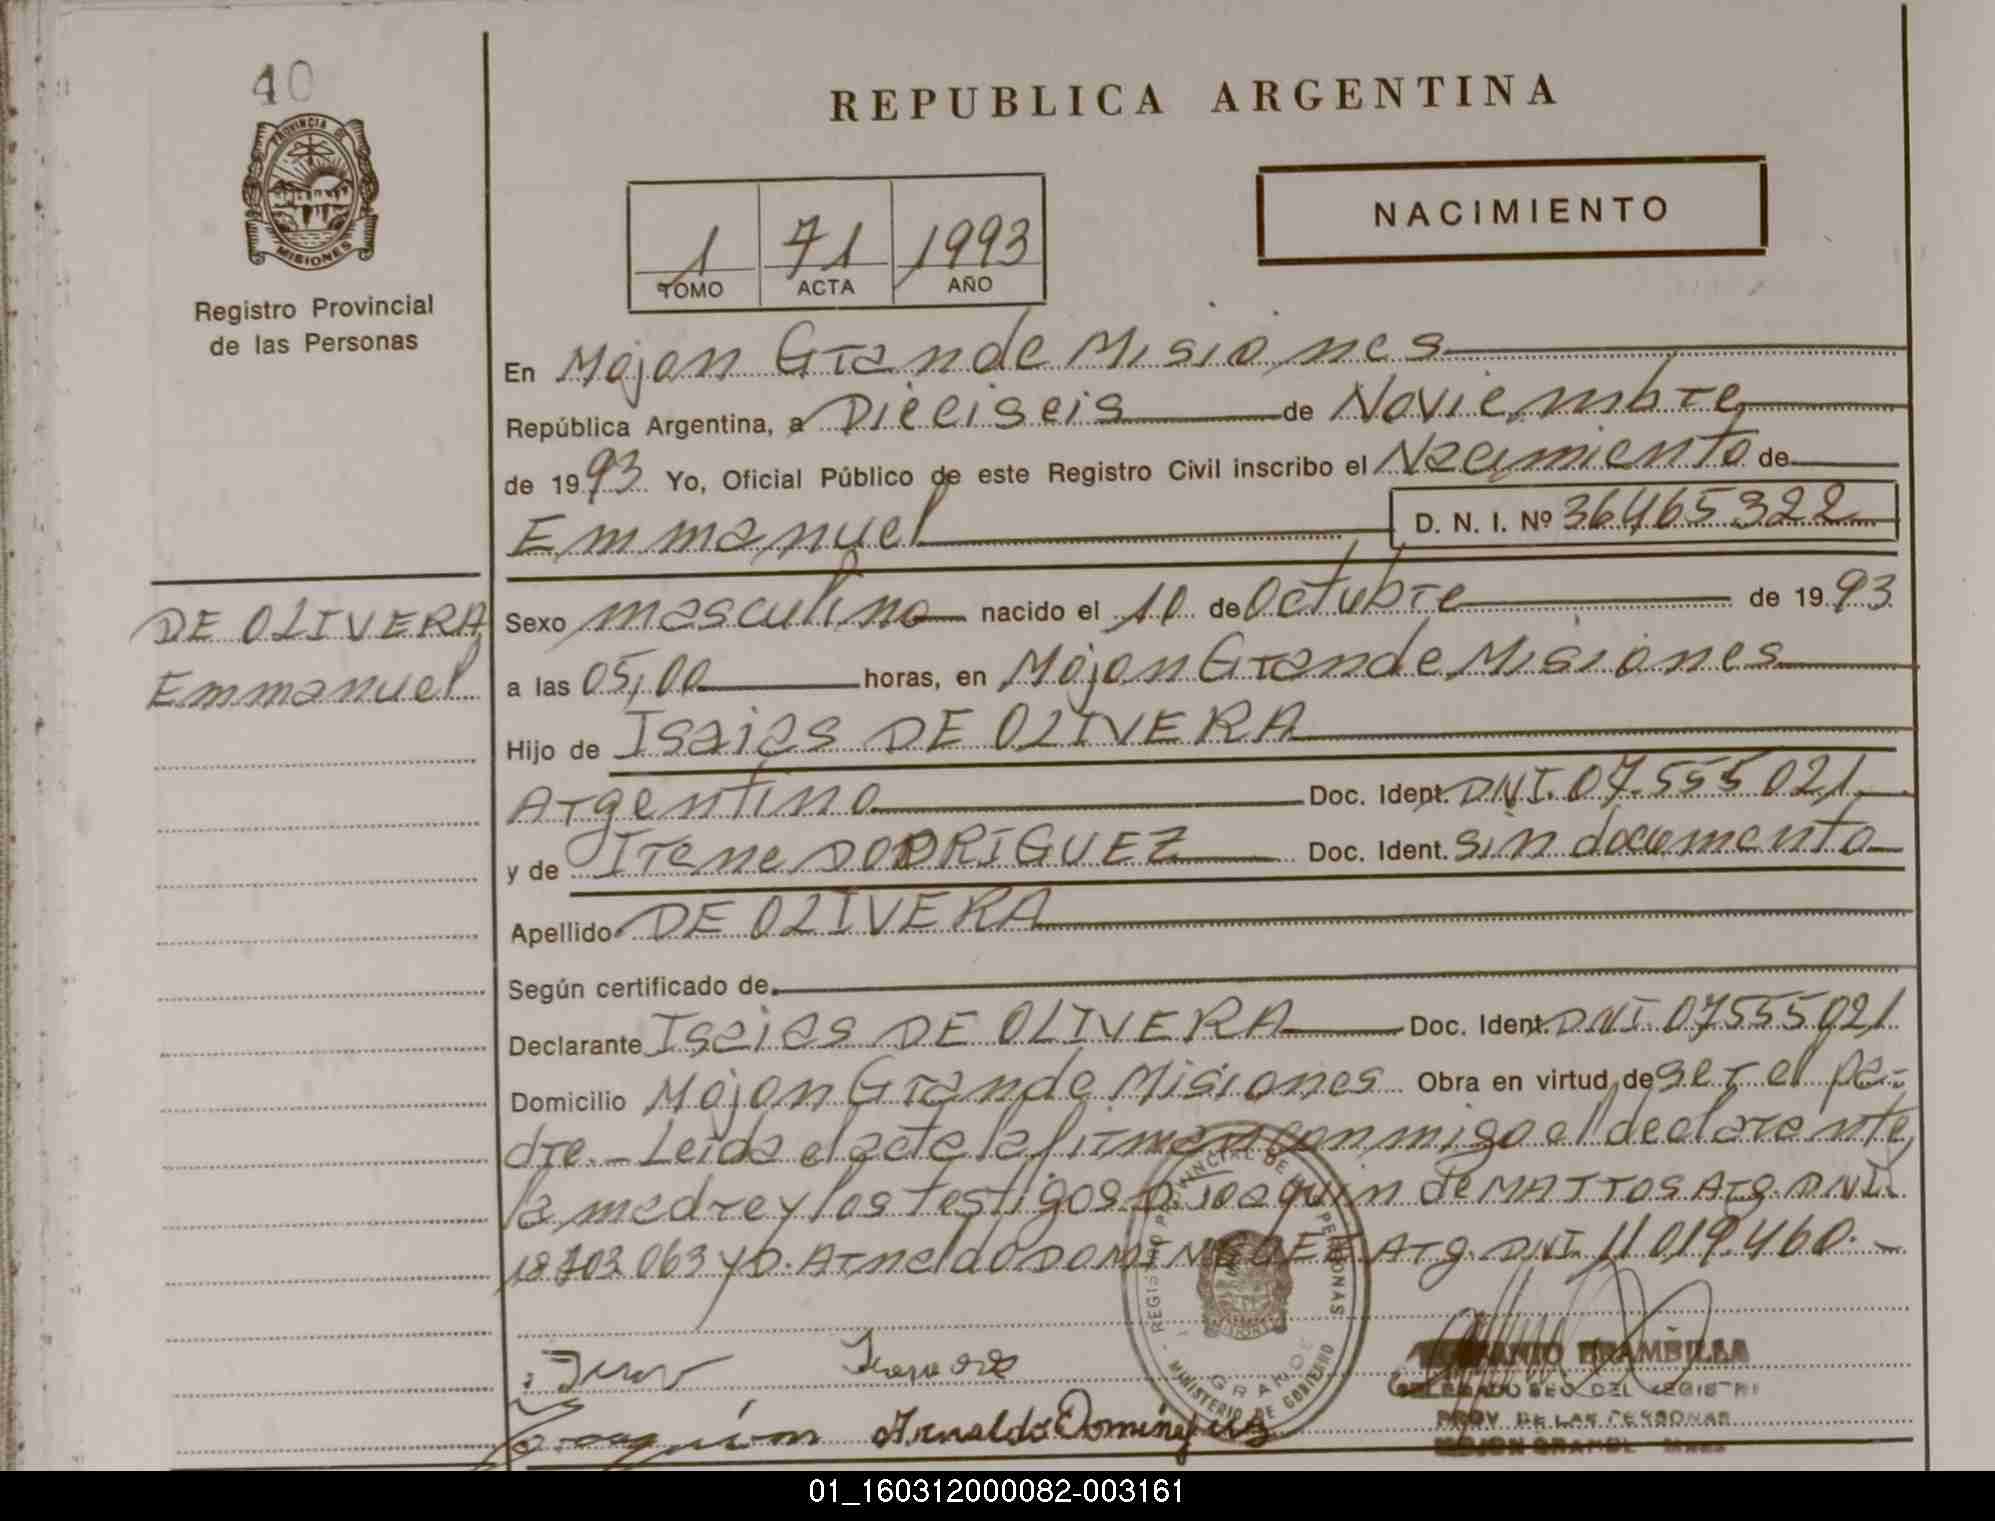 40
PROVINCIA DE
MISIONES
Registro Provincial
de las Personas
REPUBLICA ARGENTINA
1 71 1993
TOMO ACTA AÑO
NACIMIENTO
En Mojon Grande Misiones
República Argentina, a Dieciseis de Noviembre
de 1993 Yo, Oficial Público de este Registro Civil inscribo el Nacimiento de
Emmanuel D. N. I. Nº 36465322
DE OLIVERA
Emmanuel
Sexo masculino nacido el 10 de Octubre de 1993
a las 05,00 horas, en Mojon Grande Misiones
Hijo de Isaias DE OLIVERA
Argentino Doc. Ident. DNI. 07.555 021
y de Irene RODRIGUEZ Doc. Ident. sin documento
Apellido DE OLIVERA
Según certificado de
Declarante Isaias DE OLIVERA Doc. Ident. DNI. 07555021
Domicilio Mojon Grande Misiones Obra en virtud de ser el pa-
dre.- Leida el acta la firman conmigo el declarante,
la madre y los testigos D. Joaquin de MATTOS Arg. DNI.
18703 063 y D. Arnaldo DOMINGUEZ Arg. DNI. 11019.460.-
REGISTRO PROVINCIAL DE LAS PERSONAS
MINISTERIO DE GOBIERNO
GRANDE
BRAMBILLA
DELEGADO SEC. DEL REGISTRO
PROV. DE LAS PERSONAS
MOJON GRANDE
Joaquin Arnaldo Dominguez
01_160312000082-003161